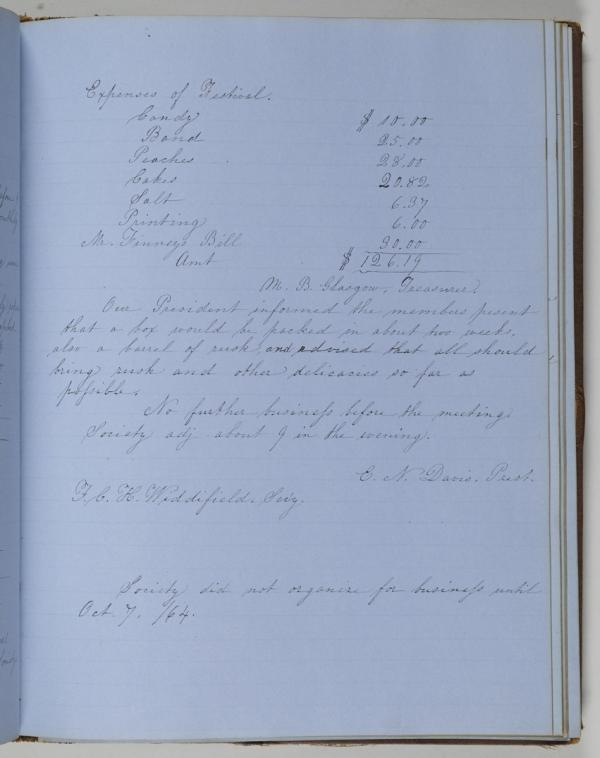 Expenses of Festival.
Candy $ 10.00
Band 25.00
Peaches 28.00
Cakes 20.82
Salt 6.37
Printing 6.00
Mr. Finneys Bill 30.00
Amt $ 126.19
M. B. Glasgow, Treasurer.
Our President informed the members present
that a box would be packed in about two weeks.
also a barrel of rusk, and advised that all should
bring rusk and other delicacies so far as
possible.
No further business before the meeting.
Society adj. about 9 in the evening.
C. N. Davis. Prest.
F. C. H. Widdifield. Secy.
Society did not organize for business until
Oct. 7. /64.